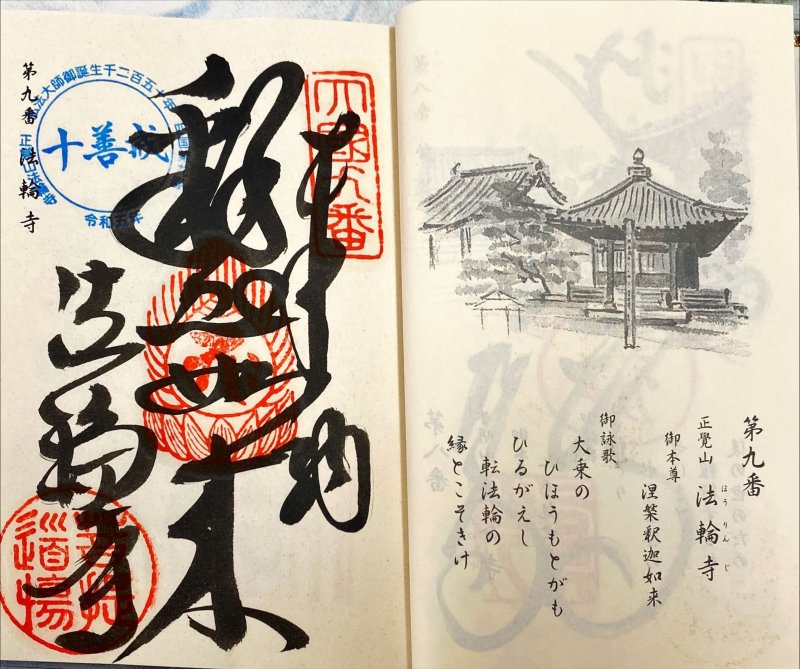 第九番
正覺山 法輪寺
ほうりんじ
御本尊 涅槃釈迦如来
御詠歌
大乗の
ひほうもとがも
ひるがえし
転法輪の
縁とこそきけ
奉納
釈迦如来
法輪寺
第九番 法輪寺
弘法大師御誕生千二百五十年
十善戒
令和五年